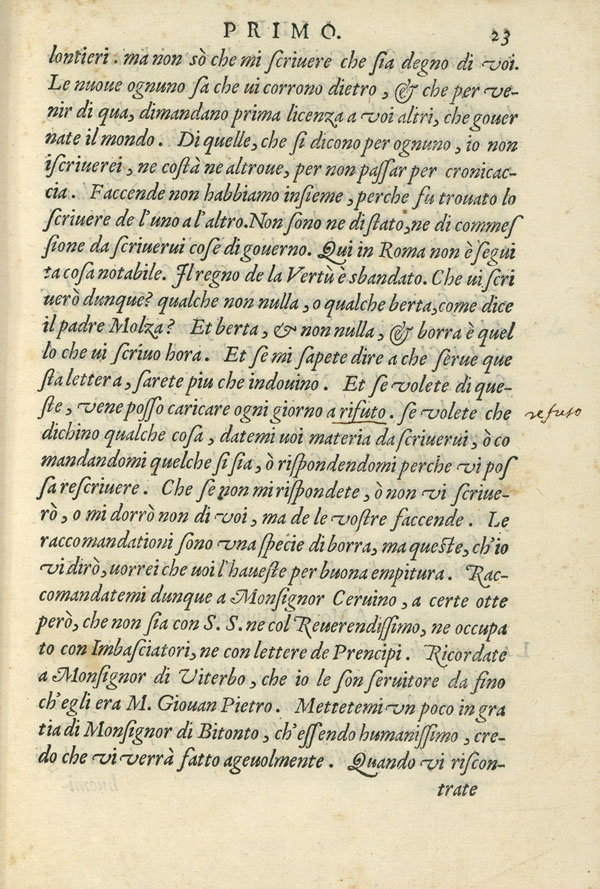 PRIMO. 23
lontieri. ma non sò che mi scriuere che sia degno di voi.
Le nuoue ognuno sa che ui corrono dietro, & che per ve-
nir di qua, dimandano prima licenza a voi altri, che gouer
nate il mondo. Di quelle, che si dicono per ognuno, io non
iscriuerei, ne costà ne altroue, per non passar per cronicac-
cia. Faccende non habbiamo insieme, perche fu trouato lo
scriuere de l'uno a l'altro. Non sono ne di stato, ne di commes
sione da scriuerui cose di gouerno. Qui in Roma non è segui
ta cosa notabile. Il regno de la Vertù è sbandato. Che ui scri
uerò dunque? qualche non nulla, o qualche berta, come dice
il padre Molza? Et berta, & non nulla, & borra è quel
lo che ui scriuo hora. Et se mi sapete dire a che serue que
sta lettera, sarete piu che indouino. Et se volete di que-
ste, vene posso caricare ogni giorno a rifuto. se volete che refuto
dichino qualche cosa, datemi uoi materia da scriuerui, ò co
mandandomi quelche si sia, ò rispondendomi perche vi pos
sa rescriuere. Che se non mi rispondete, ò non vi scriue-
rò, o mi dorrò non di voi, ma de le vostre faccende. Le
raccomandationi sono vna specie di borra, ma queste, ch'io
vi dirò, uorrei che voi l'haueste per buona empitura. Rac-
comandatemi dunque a Monsignor Ceruino, a certe otte
però, che non sia con S. S. ne col Reuerendissimo, ne occupa
to con Imbasciatori, ne con lettere de Prencipi. Ricordate
a Monsignor di Viterbo, che io le son seruitore da fino
ch'egli era M. Giouan Pietro. Mettetemi vn poco in gra
tia di Monsignor di Bitonto, ch'essendo humanissimo, cre-
do che vi verrà fatto ageuolmente. Quando vi riscon-
trate